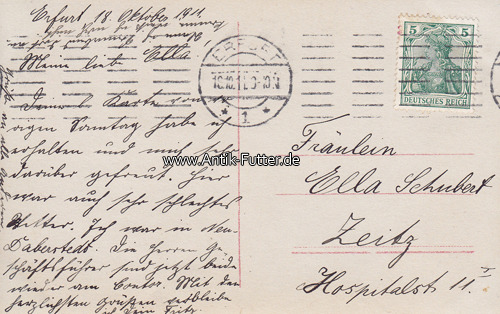 Erfurt 18. Oktober 1911.
Meine liebe Ella
Deine l. Karte vom
vorigen Sonntag habe ich
erhalten und mich sehr
darüber gefreut. Hier
war auch sehr schlechtes
Wetter. Ich war in Neu-
Daberstedt. Die Herren Ge-
schäftsführer sind jetzt beide
wieder am Contor. Mit den
herzlichsten Grüßen verbleibe
ich Dein Fritz.
5 5
DEUTSCHES REICH
ERFURT
* 1 *
www.Antik-Futter.de
Fräulein
Ella Schubert
Zeitz
Hospitalst 11 I